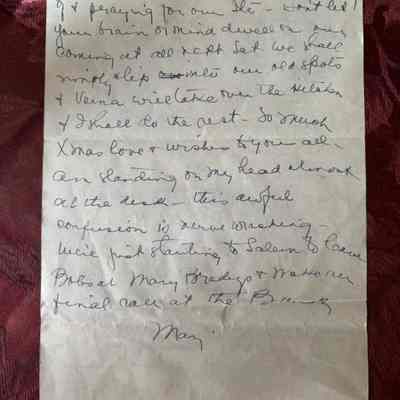 & praying for our - Don't let
your brain or mind dwell on our
coming at all next Sat we shall
simply step into our old spots
& Verna will take over the kitchen
& I shall do the rest - So much
Xmas love & wishes to you all -
Am standing on my head almost
at the desk - this awful
confusion is nerve wracking -
We're just starting to Salem to leave
Bobs at Mary & make our
final call at the
Mary